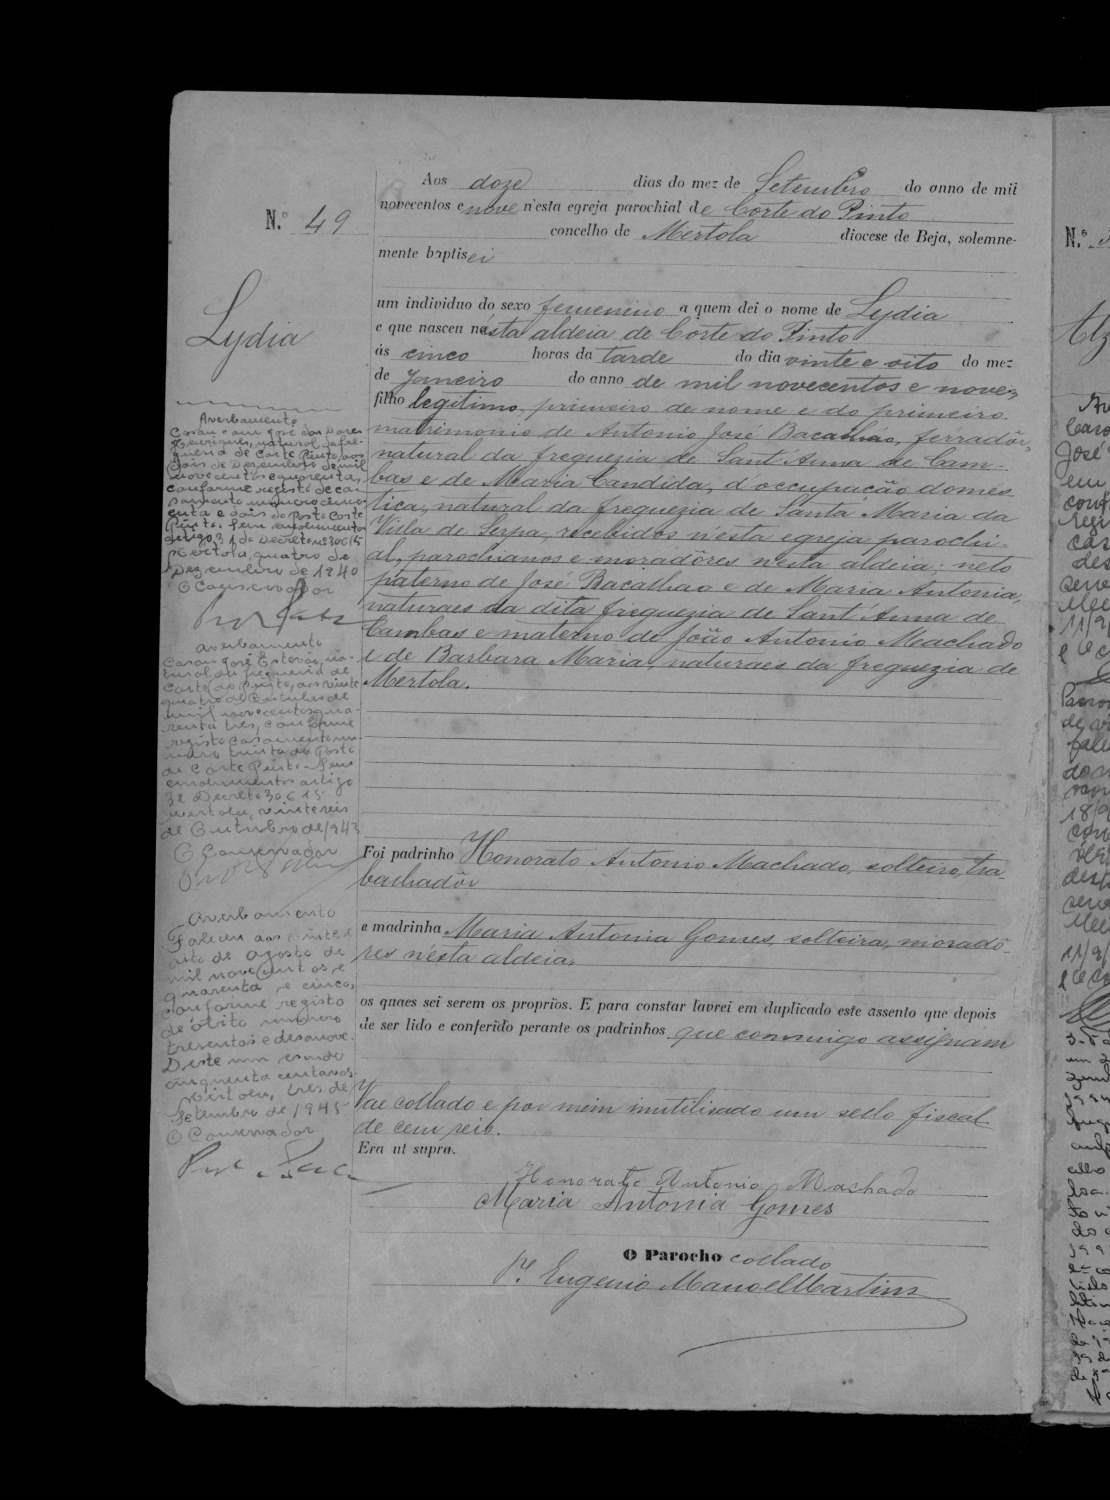 N.º 49
Lydia
Aos doze dias do mez de Setembro do anno de mil
novecentos e nove n'esta egreja parochial de Corte do Pinto
concelho de Mertola diocese de Beja, solemne-
mente baptisei
um individuo do sexo femenino a quem dei o nome de Lydia
e que nasceu nésta aldeia de Corte do Pinto
ás cinco horas da tarde do dia vinte e oito do mez
de Janeiro do anno de mil novecentos e nove,
filho legitimo, primeiro de nome e do primeiro
matrimonio de Antonio José Bacalháo, ferradôr,
natural da freguezia de Sant'Anna de Cam-
bas e de Maria Candida, d'occupação domes
tica, natural da freguezia de Santa Maria da
Villa de Serpa, recebidos n'esta egreja parochi-
al, parochianos e moradôres n'esta aldeia; neto
paterno de José Bacalhao e de Maria Antonia,
naturaes da dita freguezia de Sant'Anna de
Cambas e materno de João Antonio Machado
e de Barbara Maria, naturaes da freguezia de
Mertola.
Foi padrinho Honorato Antonio Machado, solteiro, tra-
balhadôr
e madrinha Maria Antonia Gomes, solteira, moradô-
res n'ésta aldeia,
os quaes sei serem os proprios. E para constar lavrei em duplicado este assento que depois
de ser lido e conferido perante os padrinhos que commigo assignam
Vae collado e por mim inutilisado um sello fiscal
de cem reis.
Era ut supra.
Honorato Antonio Machado
Maria Antonia Gomes
O Parocho collado
P.e Eugenio Manoel Martins
Averbamento
Casou com José das Dores
Henriques, natural da fre-
guesia de Corte Pinto, aos
dois de Dezembro de mil
novecentos e quarenta,
conforme registo de ca-
samento numero cinco-
enta e dois do Posto Corte
Pinto. Sem emolumentos
artigo 31 do Decreto nº 30615
Mertola, quatro de
Dezembro de 1940
O Conservador
Averbamento
Casou José Estevão, na-
tural da freguesia de
Corte do Pinto, aos vinte
quatro de Outubro de
mil novecentos qua-
renta três, conforme
registo casamento nu-
mero trinta do Posto
de Corte Pinto - Sem
emolumentos artigo
32 Decreto 30615
Mertola, vinte seis
de Outubro de 1943
O Conservador
Averbamento
Faleceu aos vinte e
oito de agosto de
mil novecentos e
quarenta e cinco,
conforme registo
de óbito numero
trezentos e desanove.
Deste um escudo
cinquenta centavos.
Mertola, tres de
Setembro de 1945
O Conservador
N.º